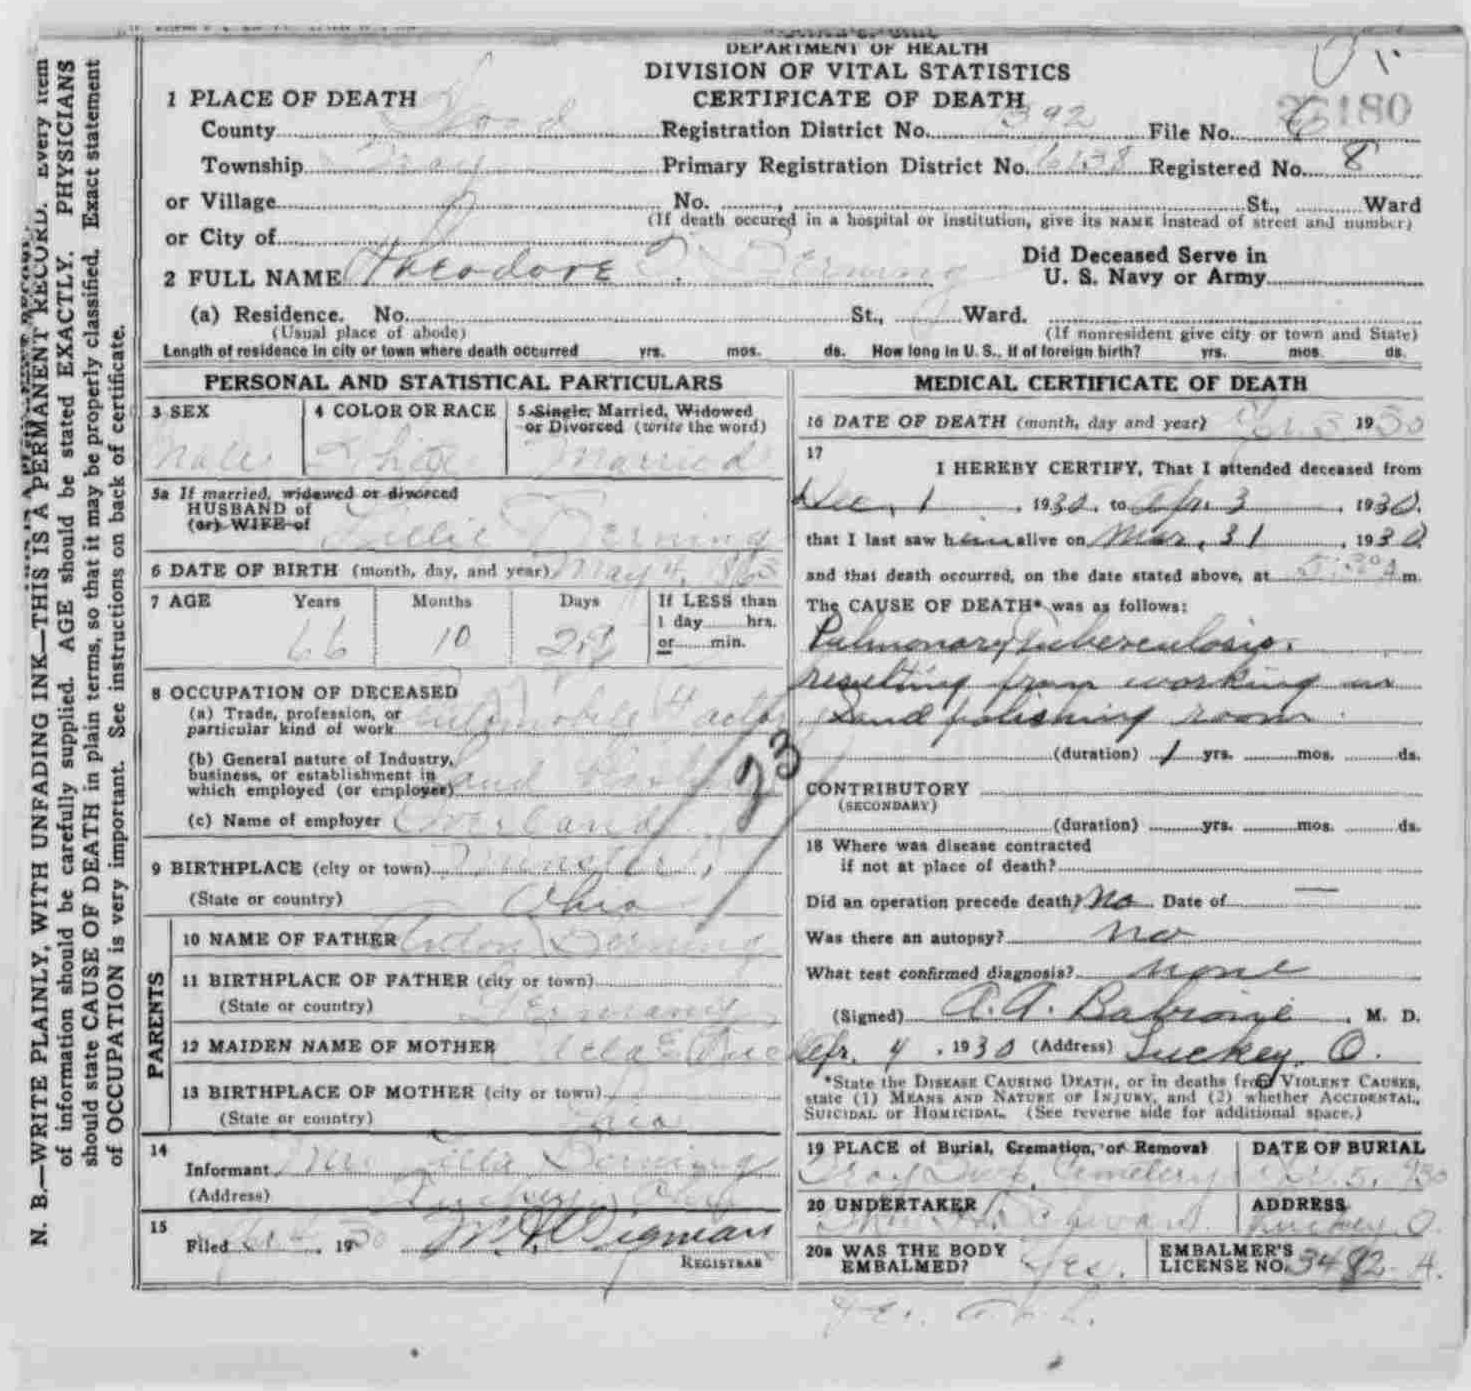 DEPARTMENT OF HEALTH
DIVISION OF VITAL STATISTICS
CERTIFICATE OF DEATH
26180
1 PLACE OF DEATH
County Wood Registration District No. 392 File No.
Township Troy Primary Registration District No. 6138 Registered No. 8
or Village No. , St., Ward
(If death occured in a hospital or institution, give its NAME instead of street and number)
or City of
2 FULL NAME Theodore Derning
Did Deceased Serve in
U. S. Navy or Army
(a) Residence. No. St., Ward.
(Usual place of abode) (If nonresident give city or town and State)
Length of residence in city or town where death occurred yrs. mos. ds. How long in U. S., if of foreign birth? yrs. mos. ds.
PERSONAL AND STATISTICAL PARTICULARS
3 SEX
Male
4 COLOR OR RACE
White
5 Single, Married, Widowed
or Divorced (write the word)
Married
5a If married, widowed or divorced
HUSBAND of
(or) WIFE of
Lillie Derning
6 DATE OF BIRTH (month, day, and year) May 4, 1863
7 AGE Years Months Days If LESS than
1 day hrs.
or min.
66 10
8 OCCUPATION OF DECEASED
(a) Trade, profession, or
particular kind of work Automobile Factory
(b) General nature of Industry,
business, or establishment in
which employed (or employer) Sand
(c) Name of employer Overland
23
9 BIRTHPLACE (city or town) Minster
(State or country) Ohio
PARENTS
10 NAME OF FATHER Derning
11 BIRTHPLACE OF FATHER (city or town)
(State or country) Germany
12 MAIDEN NAME OF MOTHER
13 BIRTHPLACE OF MOTHER (city or town)
(State or country) Ohio
14
Informant Mrs Derning
(Address) Luckey, Ohio
15
Filed 4, 1930
REGISTRAR
MEDICAL CERTIFICATE OF DEATH
16 DATE OF DEATH (month, day and year) Apr 3 1930
17
I HEREBY CERTIFY, That I attended deceased from
Dec, 1, 1930, to Apr. 3, 1930.
that I last saw him alive on Mar, 31, 1930
and that death occurred, on the date stated above, at 5:30 A m.
The CAUSE OF DEATH* was as follows:
Pulmonary Tuberculosis.
resulting from working in
Sand polishing room.
(duration) 1 yrs. mos. ds.
CONTRIBUTORY
(SECONDARY)
(duration) yrs. mos. ds.
18 Where was disease contracted
if not at place of death?
Did an operation precede death? No. Date of
Was there an autopsy? no
What test confirmed diagnosis? none
(Signed) A. A. , M. D.
Apr. 4, 1930 (Address) Luckey, O.
*State the DISEASE CAUSING DEATH, or in deaths from VIOLENT CAUSES,
state (1) MEANS AND NATURE OF INJURY, and (2) whether ACCIDENTAL,
SUICIDAL or HOMICIDAL. (See reverse side for additional space.)
19 PLACE of Burial, Cremation, or Removal
Troy Twp. Cemetery
DATE OF BURIAL
5, 1930
20 UNDERTAKER
ADDRESS
Luckey O.
20a WAS THE BODY
EMBALMED? Yes.
EMBALMER'S
LICENSE NO. 3482-A.
N. B.—WRITE PLAINLY, WITH UNFADING INK—THIS IS A PERMANENT RECORD. Every item
of information should be carefully supplied. AGE should be stated EXACTLY. PHYSICIANS
should state CAUSE OF DEATH in plain terms, so that it may be properly classified. Exact statement
of OCCUPATION is very important. See instructions on back of certificate.